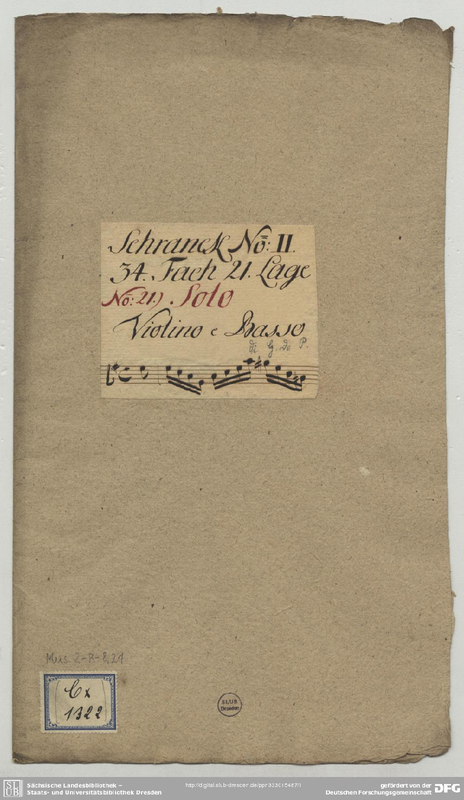 Schranck No: II.
34. Fach 21. Lage
No: 21.) Solo
Violino e Basso
Mus. 2-R-8,21
Cx
1322
SLUB
Dresden
Sächsische Landesbibliothek –
Staats- und Universitätsbibliothek Dresden
gefördert von der
Deutschen Forschungsgemeinschaft
DFG